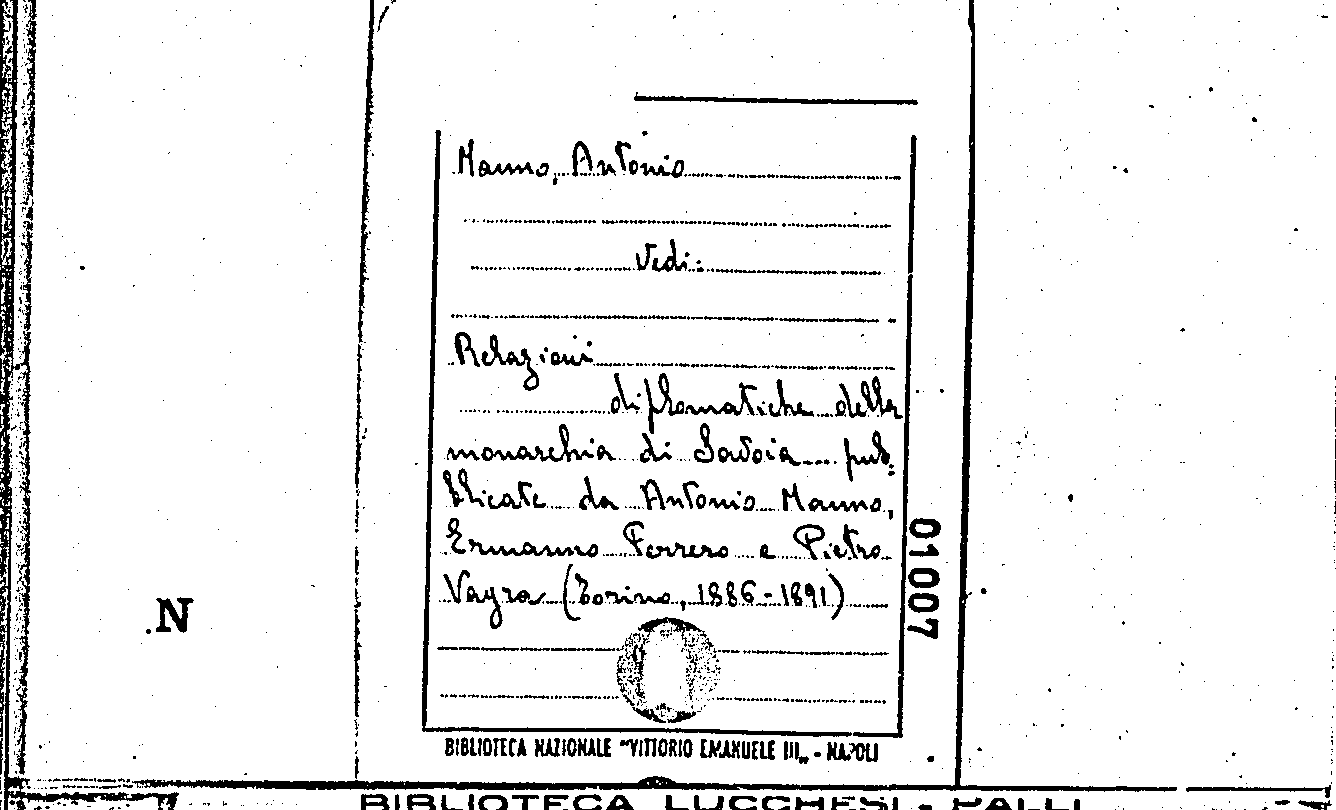 Manno, Antonio
Vedi:
Relazioni
diplomatiche della
monarchia di Savoia.... pub=
blicate da Antonio Manno,
Ermanno Ferrero e Pietro
Vayra (Torino, 1886-1891)
01007
.N
BIBLIOTECA NAZIONALE "VITTORIO EMANUELE III„ - NAPOLI
BIBLIOTECA LUCCHESI - PALLI